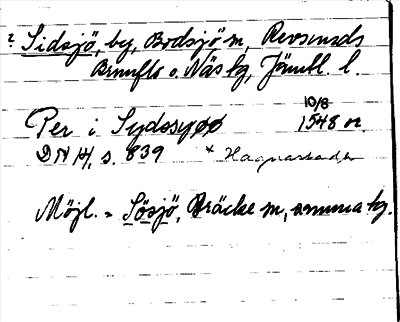 ? Sidsjö, by, Bodsjö sn, Revsunds
Brunflo o. Näs tg, Jämtl. l.
10/8
Per i Sydosyøø 1548 or.
DN 14, s. 839 * Hagnarstader
Möjl. = Sösjö, Bräcke sn, samma tg.